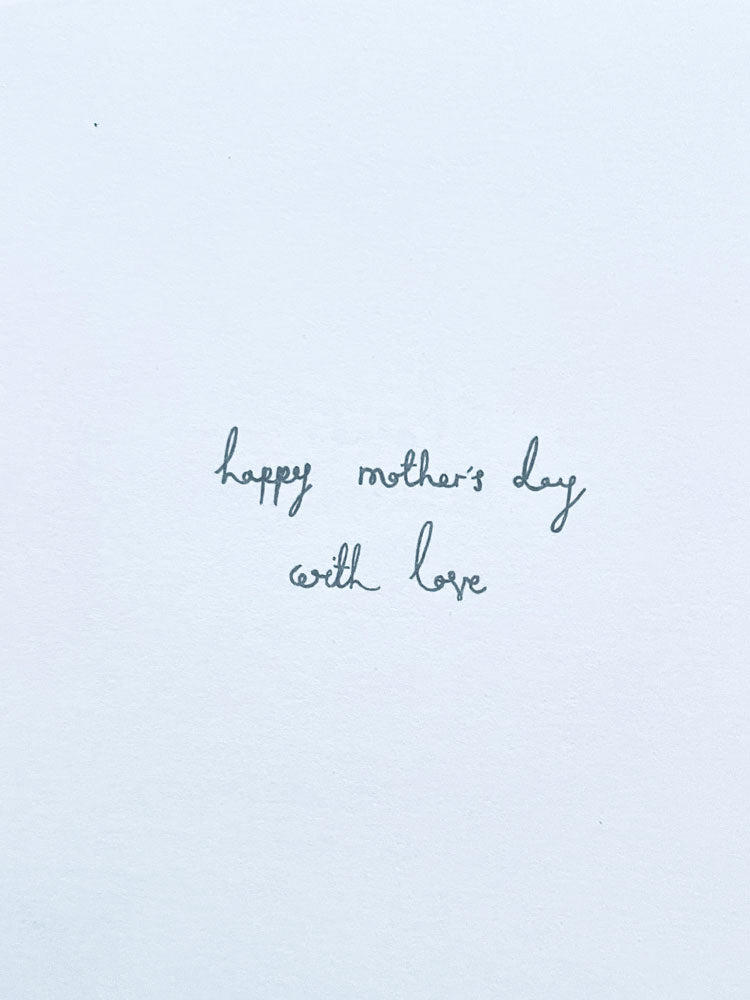 happy mother's day
with love